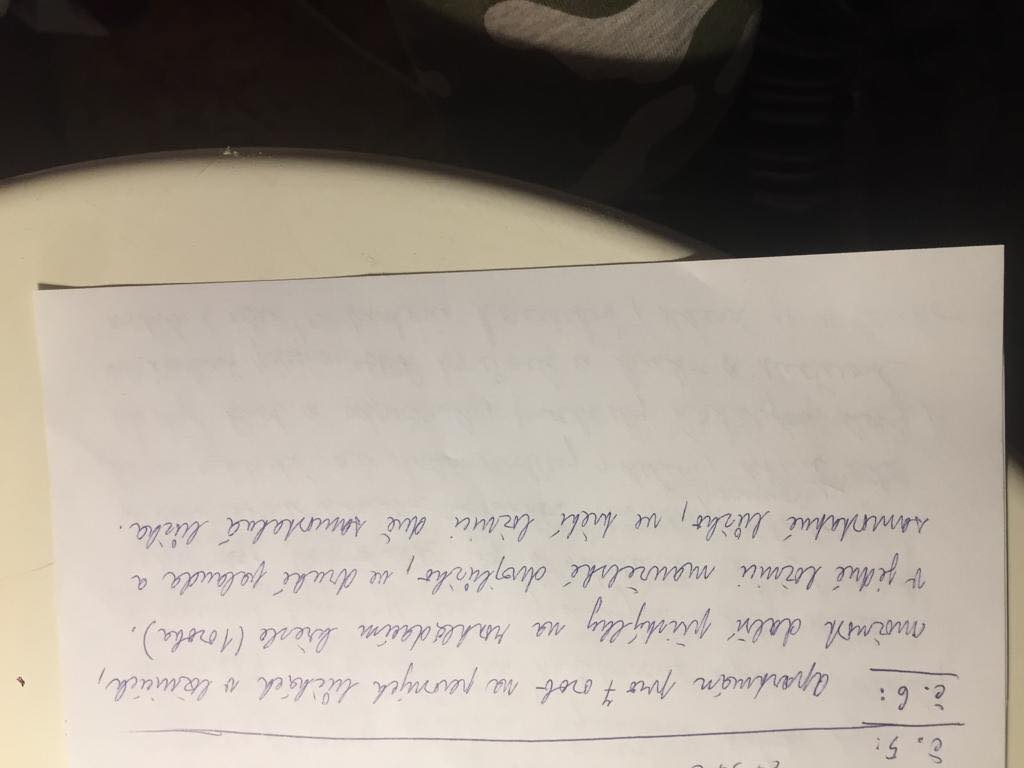 č. 5:
č. 6: Apartmán pro 7 osob na pevných lůžkách v ložnicích,
možnost další přistýlky na rozkládacím křesle (1 osoba).
V jedné ložnici manželské dvojlůžko, ve druhé palanda a
samostatné lůžko, ve třetí ložnici dvě samostatná lůžka.